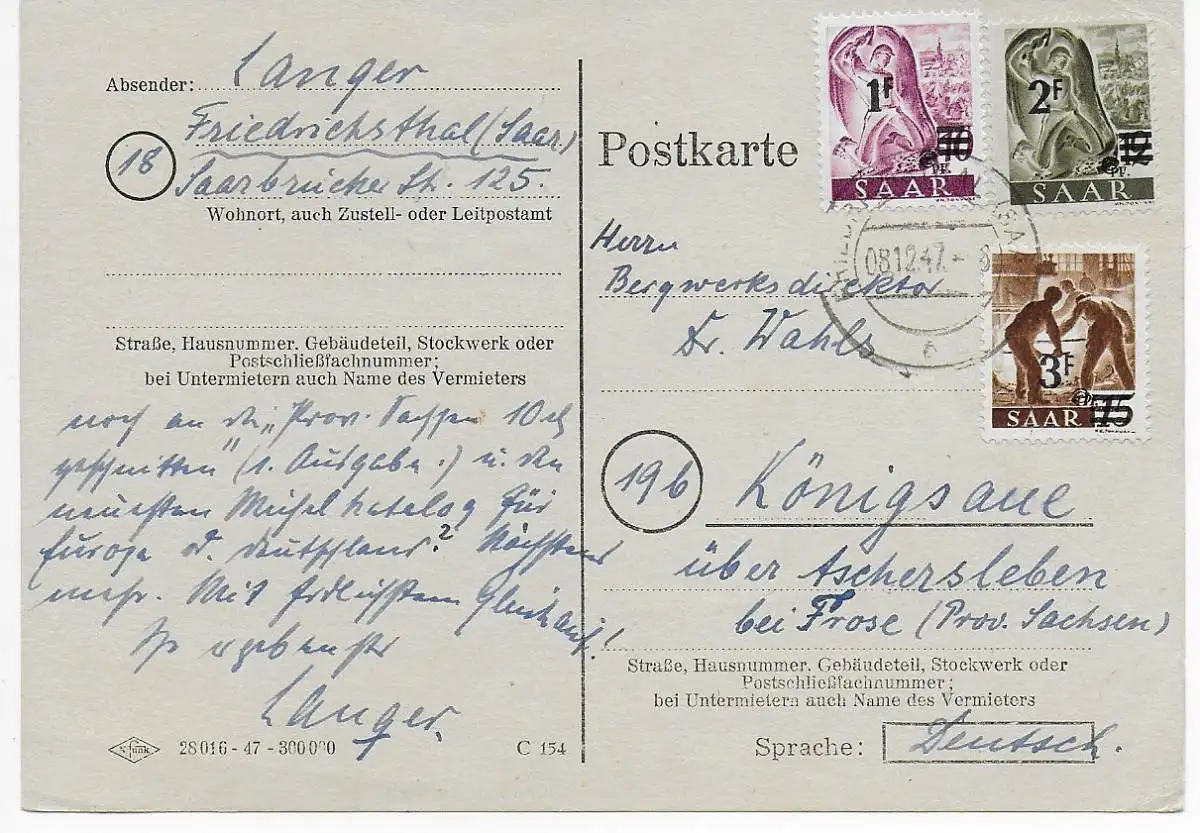 Absender: Langer
Friedrichsthal (Saar)
18
Saarbrücker St. 125.
Wohnort, auch Zustell- oder Leitpostamt
Straße, Hausnummer, Gebäudeteil, Stockwerk oder
Postschließfachnummer;
bei Untermietern auch Name des Vermieters
noch an die „Prov. Sachsen 10 
geschnitten" (1. Ausgabe.) u. den
neuesten Michelkatalog für
Europa od. Deutschland? Nächstens
mehr. Mit herzlichstem Glückauf!
Ihr ergebenster
Langer.
28016 - 47 - 300000
C 154
Postkarte
1F
10
PF.
SAAR
2F
12
PF.
SAAR
3F
75
SAAR
08.12.47
Herrn
Bergwerksdirektor
Dr. Wahls
19b
Königsaue
über Aschersleben
bei Frose (Prov. Sachsen)
Straße, Hausnummer, Gebäudeteil, Stockwerk oder
Postschließfachnummer;
bei Untermietern auch Name des Vermieters
Sprache: Deutsch.